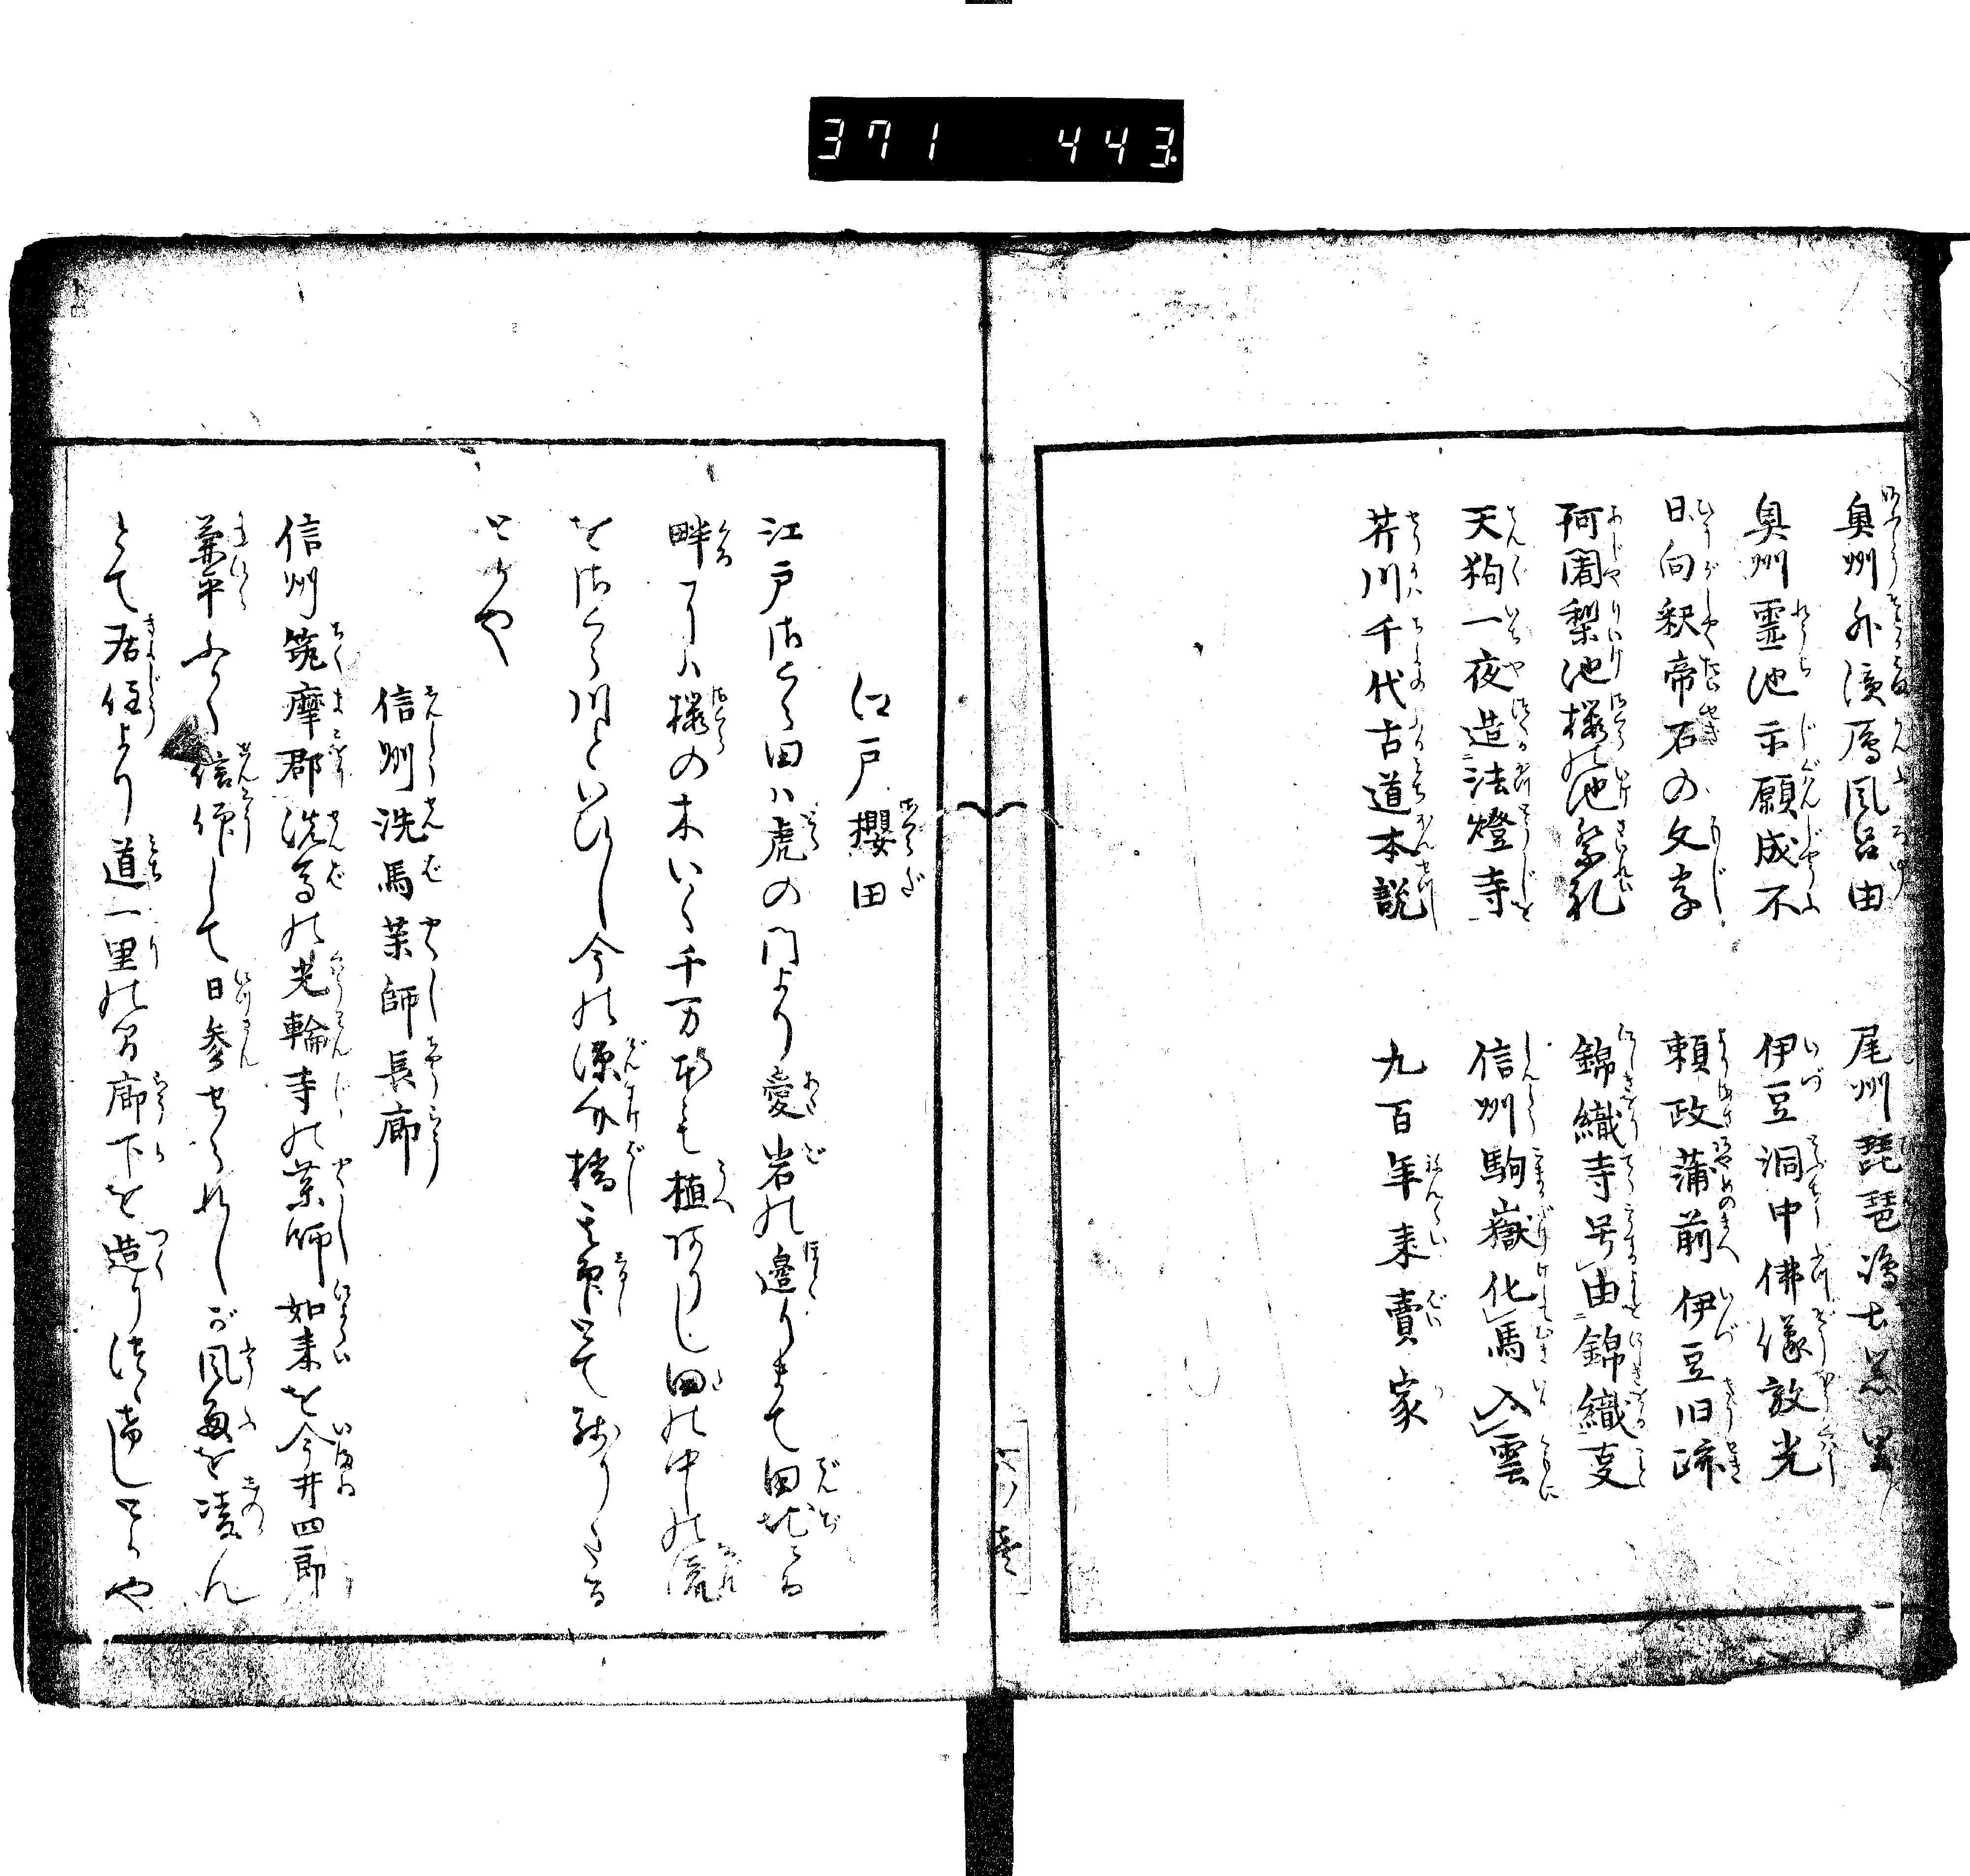 371 443
奥州外濱雁風呂由
尾州琵琶嶋七里
奥州靈池示願成不
伊豆洞中佛像放光
日向釈帝石の文字
頼政蒲前伊豆旧跡
阿闍梨池櫻の池祭礼
錦織寺号由錦織事
天狗一夜造法燈寺
信州駒嶽化馬入雲
芥川千代古道本説
九百年来賣家
江戸櫻田
江戸さくら田ハ虎の門より愛宕の邊りまて田地にて
畔にハ櫻の木いく千万本も植ありし田の中の流
をさくら川といひし今の源介橋其印とて残りける
とかや
信州洗馬薬師長廊
信州筑摩郡洗馬の光輪寺の薬師如来を今井四郎
兼平ふかく信仰して日参せられしが風雨を凌ん
とて居住より道一里の間廊下を造りつゝけしとかや